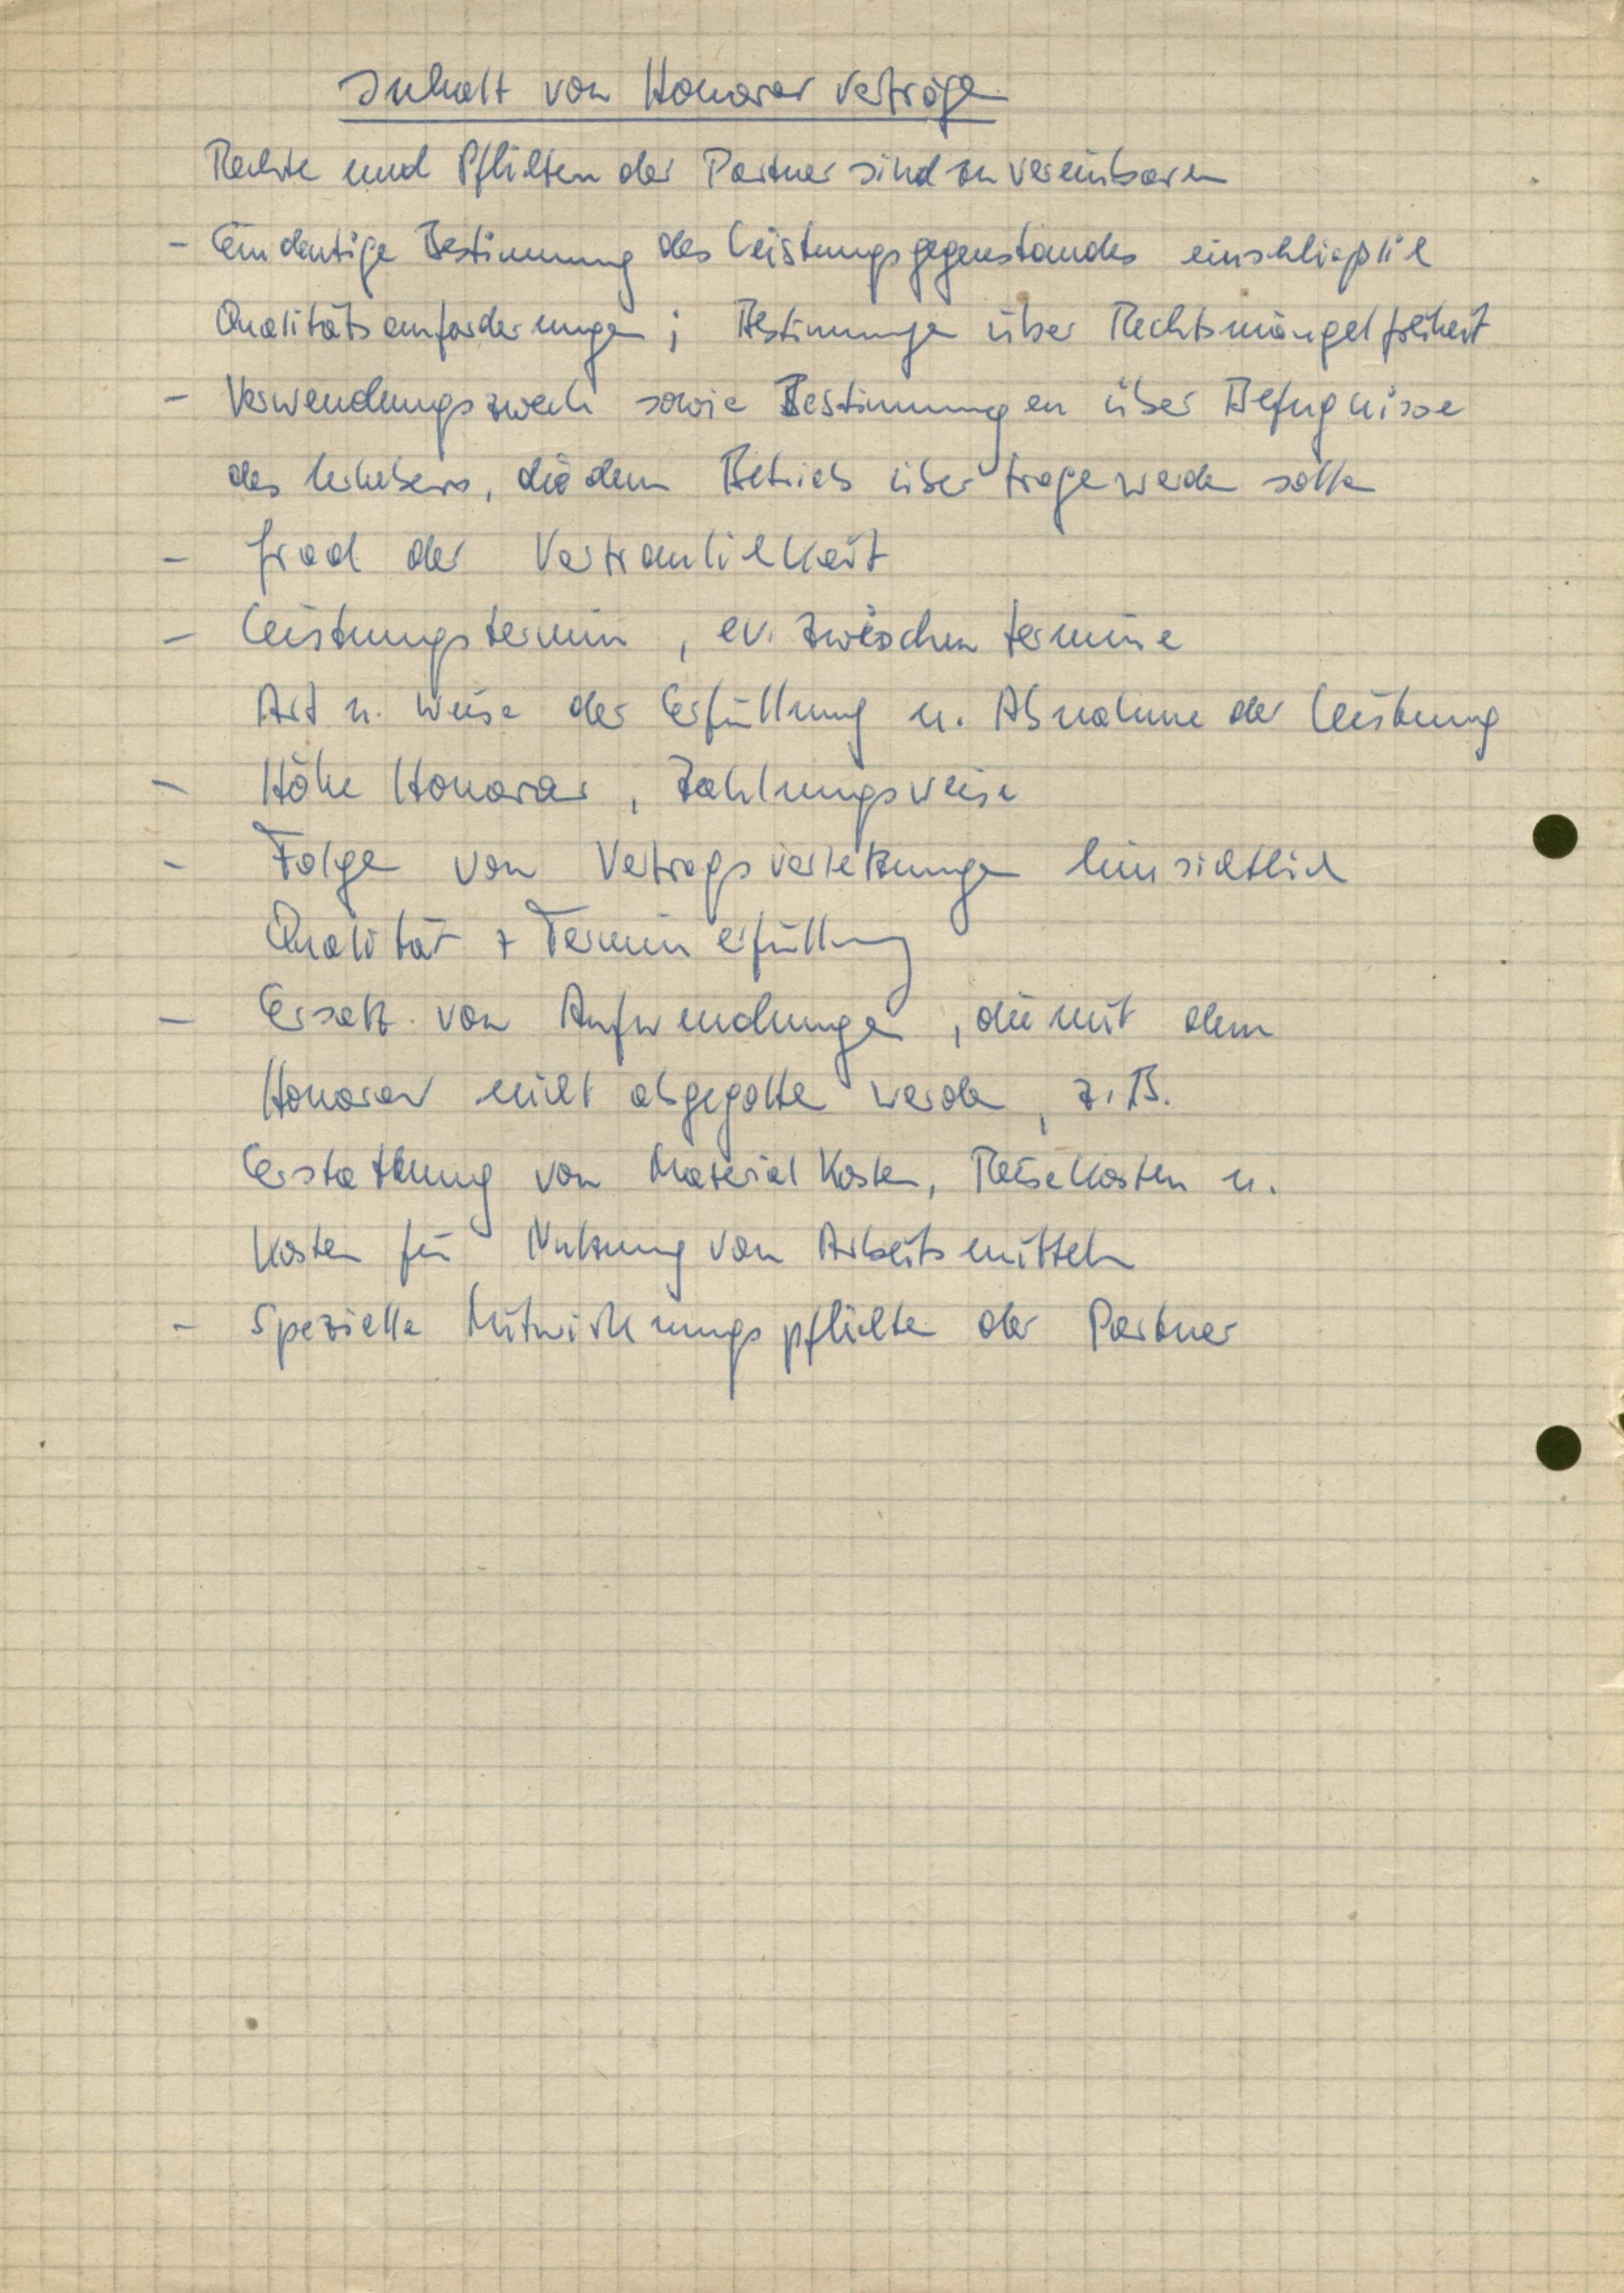 Inhalt von Honorarverträgen
Rechte und Pflichten der Partner sind zu vereinbaren
- Eindeutige Bestimmung des Leistungsgegenstandes einschließlich
Qualitätsanforderungen; Bestimmungen über Rechtsmängelfreiheit
- Verwendungszweck sowie Bestimmungen über Befugnisse
des Urhebers, die dem Betrieb übertragen werden sollen
- Grad der Vertraulichkeit
- Leistungstermin, ev. Zwischentermine
Art u. Weise der Erfüllung u. Abnahme der Leistung
- Höhe Honorar, Zahlungsweise
- Folgen von Vertragsverletzungen hinsichtlich
Qualität + Terminerfüllung
- Ersatz von Aufwendungen, die mit dem
Honorar nicht abgegolten werden, z.B.
Erstattung von Materialkosten, Reisekosten u.
Kosten für Nutzung von Arbeitsmitteln
- Spezielle Mitwirkungspflichten der Partner